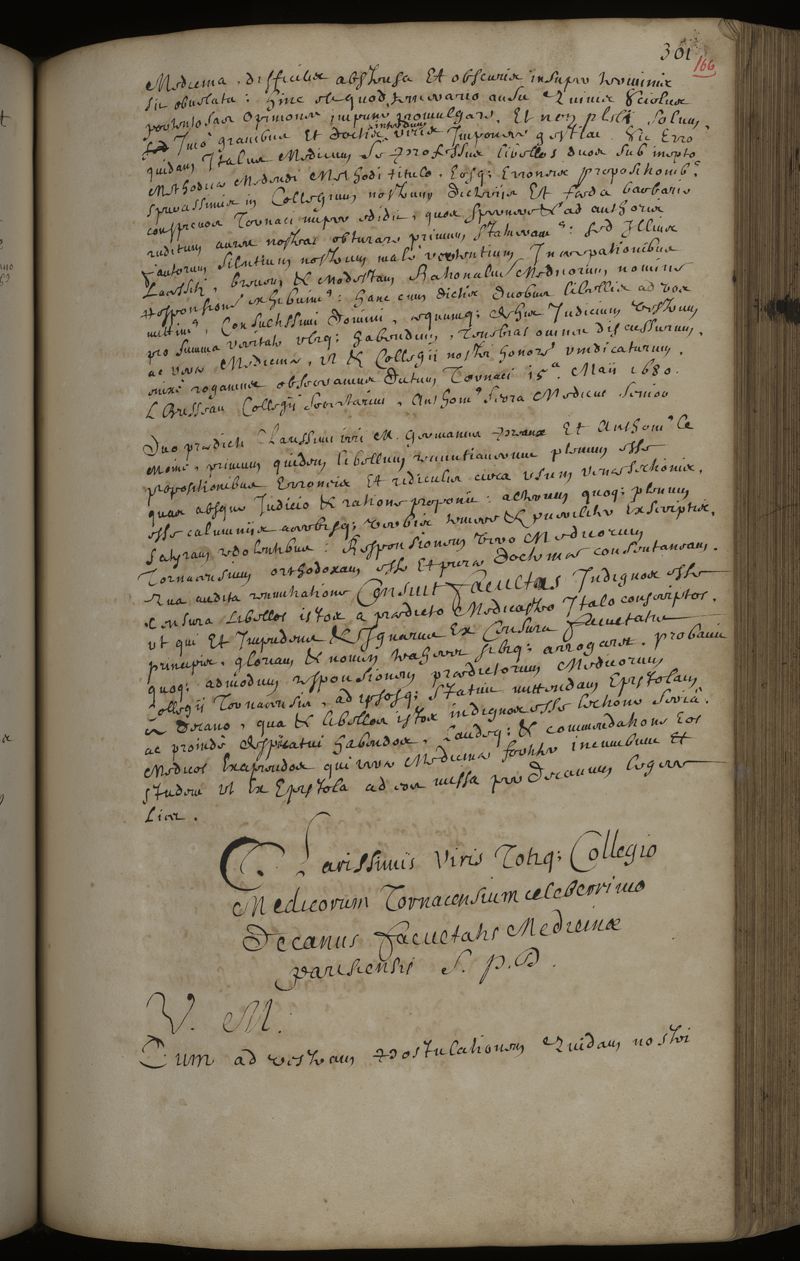 301
166
Medicina, difficilia abstrusa Et obscuria insuper nominis
sic obvolata: hinc est quod temerario ausu Quivis Sciolus
portentosas Opiniones impune promulgare, Et non plebi solum,
sed Imò gravibus Et doctis interdum viris Imponere gestiat. Sic Erro
quidam Italus Medicum se professus libellos duos sub inepto
Methodus Medendi Methodi titulo. Eosq; Erroneis propositionib9
spurcissimis in Collegium nostrum dicteriis Et fœda barbarie
conspicuos Tornaci nuper edidit, quos spernere & ad authoris
ruditum aures nostras obturare primum statueram9: sed Illius
fautorum silentium nostrum male vertentium Interpationibus
Lacessiti, brevem & modestam Rationalium Medicorum nomine
Responsionem exhibuim9: hanc cum dictis duobus libellis ad vos
mittim9, Consultissimi Domini, æquumq; & his Iudicium Vestrum
pro summa veritate ubiq; habendum, tenebras omnes discussurum,
ac veræ Medicinæ, ut & Collegii nostri honorem vindicaturum,
enixe rogamus obsecramus Datum Tornaci 15.a Maii 1680.
L Brisseau Collegii Secretarius, Anthon9 Scora Medicus Senior
Duo prædicti Clarissimi viri M. Germanus Preaux Et Anthon9 Le
Moine, primum quidem libellum renuntiaverunt plenum esse
propositionibus Erroneis Et ridiculis circa usum venæsectionis,
quas absque Iudicio & ratione proponit: alterum quoq; plenum
esse calumniis acerbisq; verbis temere & pueriliter Exscriptis,
satyram redolentibus: Responsionem vero Medicorum
Tornacensium orthodoxam esse Et puræ doctrinæ consentaneam.
Qua audita renuntiatione Censuit Facultas Indignos esse
Censura Libellos istos a prædicto Medicastro Italo conscriptos,
ut qui Et Impudens & Ignarus Ex Censura Facultatis
principis, gloriam & nomen trahere sibiq; arrogaret. probavit
quoq; admodum responsionem prædictorum Medicorum
Collegii Tornacensis, ad ipsosq; statuit mittendam Epistolam
a Decano, qua & libellos istos indignos esse lectione seria.
ac proinde despicatui habendos, Laudeq; & commendatione Eos
Medicos Excipiendos qui veræ Medicinæ fortiter incumbunt Et
student ut Ex Epistola ad eos missa per Decanum legere
Licet.
Clarissimis Viris Totiq; Collegio
Medicorum Tornacensium celeberrimo
Decanus Facultatis Medicinæ
parisiensis S. p. D.
V. M.
Cum ad vestram Postulationem Quidam nostri